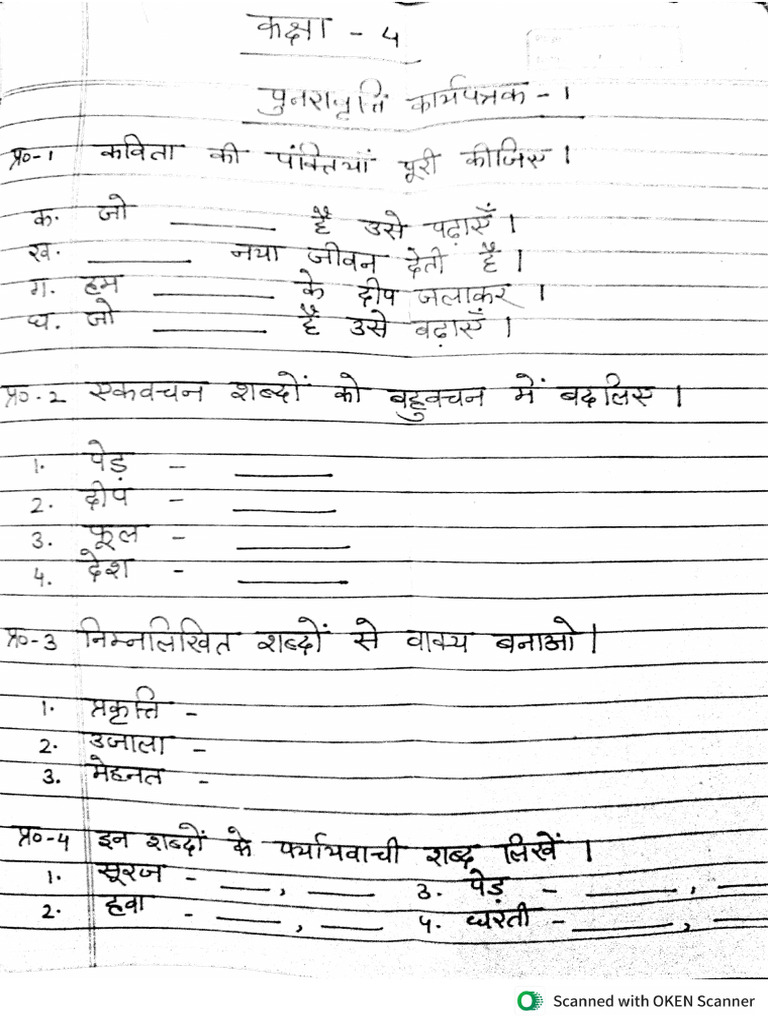 कक्षा - 4
पुनरावृत्ति कार्यपत्रक - 1
प्र०-1 कविता की पंक्तियां पूरी कीजिए।
क. जो ______ है उसे पढ़ाएँ।
ख. ______ नया जीवन देती है।
ग. हम ______ के दीप जलाकर।
घ. जो ______ है उसे बढ़ाएँ।
प्र०-2 एकवचन शब्दों को बहुवचन में बदलिए।
1. पेड़ - ______
2. दीप - ______
3. फूल - ______
4. देश - ______
प्र०-3 निम्नलिखित शब्दों से वाक्य बनाओ।
1. प्रकृत्ति -
2. उजाला -
3. मेहनत -
प्र०-4 इन शब्दों के पर्यायवाची शब्द लिखें।
1. सूरज - ___, ___ 3. पेड़ - ___, ___
2. हवा - ___, ___ 4. धरती - ___, ___
Scanned with OKEN Scanner